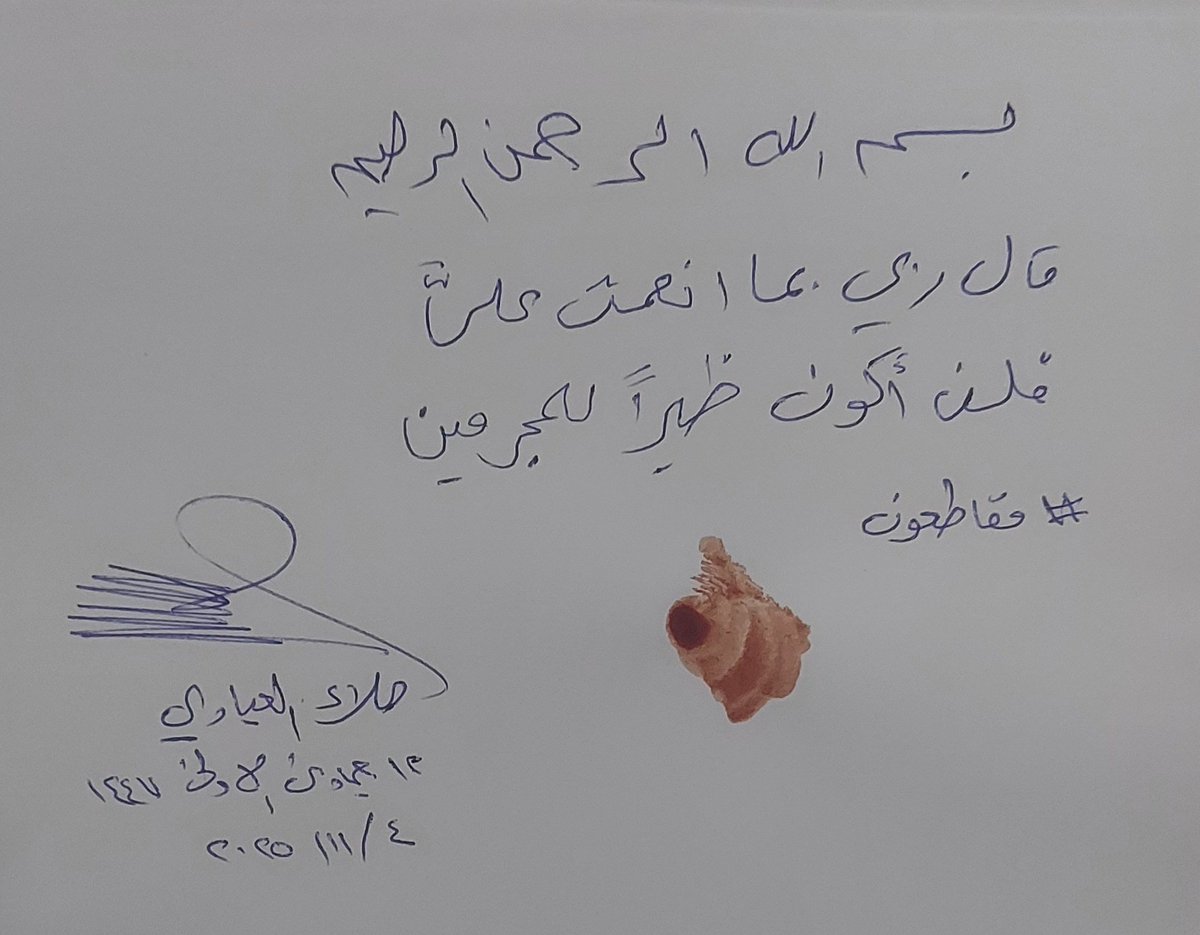 بسم الله الرحمن الرحيم
قال ربي بما انعمت عليَّ
فلن أكون ظهيراً للمجرمين
#مقاطعون
العبادي
١٣ جمادى الاولى ١٤٤٧
٤/١١/ ٢٠٢٥